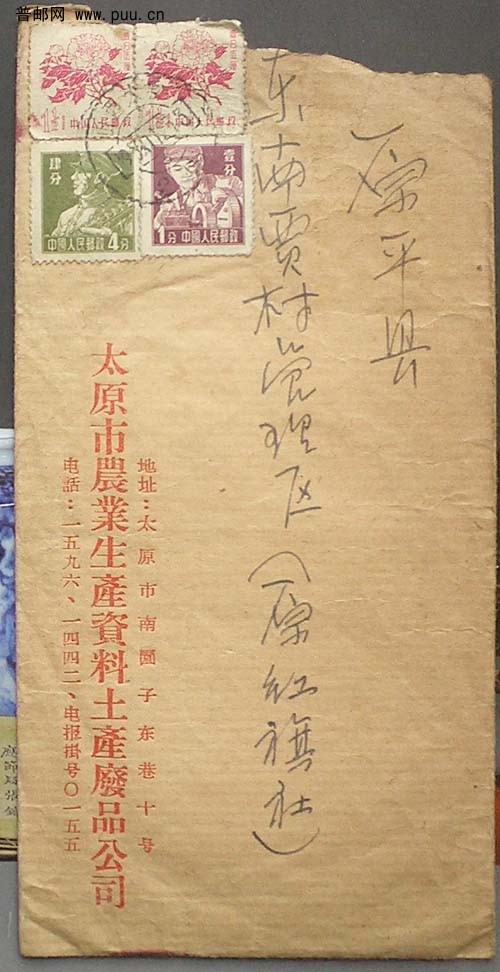 普邮网 www.puu.cn
中国人民邮政
中国人民邮政
肆分
中國人民郵政 4分
壹分
1分 中國人民郵政
原平县
东南贾村管理区(原红旗社)
地址:太原市南圆子东巷十号
太原市農業生產資料土產廢品公司
电話:一五九六、一四四二、电报掛号〇一五五